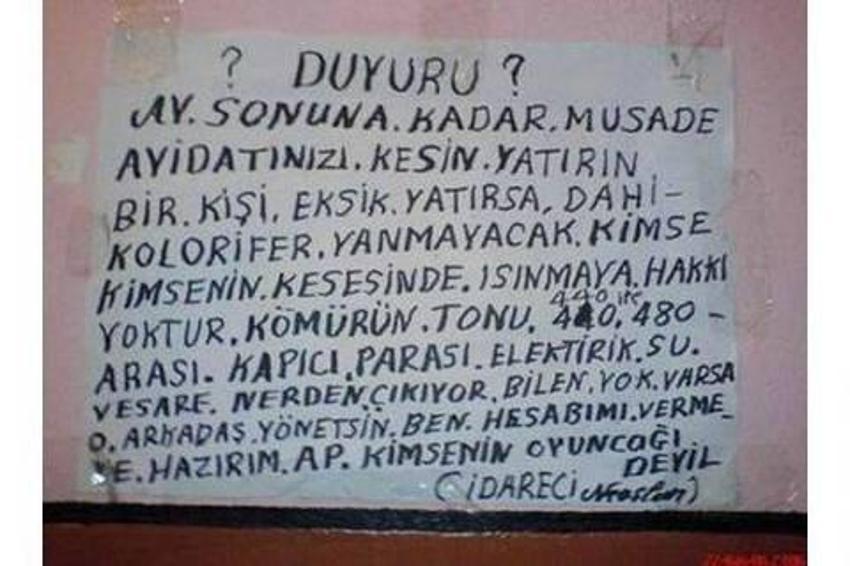 ? DUYURU ?
AY. SONUNA. KADAR. MUSADE
AYİDATINIZI. KESİN. YATIRIN
BİR. KİŞİ. EKSİK. YATIRSA, DAHİ-
KOLORİFER. YANMAYACAK. KİMSE
KİMSENİN. KESESİNDE. ISINMAYA. HAKKI
YOKTUR. KÖMÜRÜN. TONU. 440 ile 480 -
ARASI. KAPICI. PARASI. ELEKTİRİK. SU.
VESARE. NERDEN. ÇIKIYOR. BİLEN. YOK. VARSA
O. ARKADAŞ. YÖNETSİN. BEN. HESABIMI. VERME_
YE. HAZIRIM. AP. KİMSENİN OYUNCAĞI
DEYİL
(İDARECİ